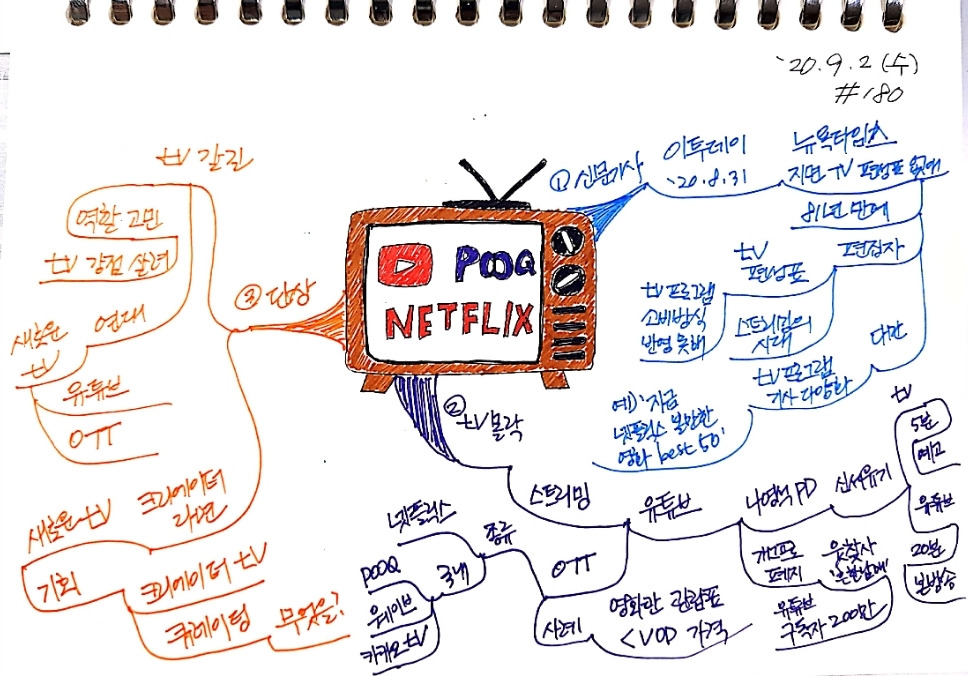 '20.9.2 (수)
#180
POOQ
NETFLIX
① 신문기사
이투데이
'20.8.31
뉴욕타임스
지면 TV 편성표 없애
81년 만에
편집자
TV
편성표
TV 프로그램
소비방식
반영 못해
스트리밍의
시대
다만
TV 프로그램
기사 다양화
예) '지금
넷플릭스 볼만한
영화 best 50'
② TV 몰락
스트리밍
유튜브
나영석 PD
신서유기
TV
5분
예고
유튜브
20분
본방송
개인프로
페지
'은환갈매'
유튜브
구독자 200만
OTT
종류
넷플릭스
국내
POOQ
웨이브
카카오TV
사례
영화관 관람표
< VOD 가격
③ 단상
TV 갈길
역할 고민
TV 강점 살려
연대
새로운
TV
유튜브
OTT
크리에이터
라면
새로운 TV
기회
크리에이터 TV
큐레이팅
무엇을?